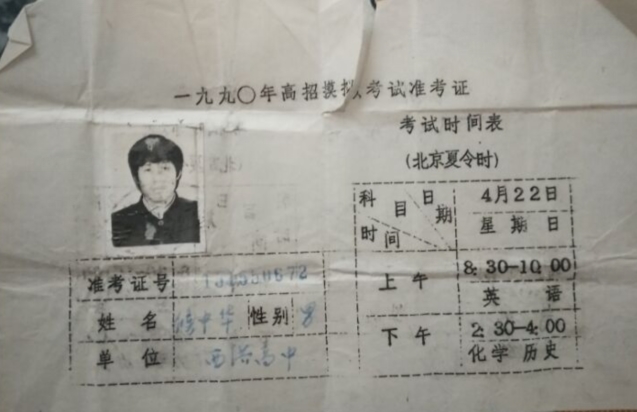 一九九〇年高招模拟考试准考证
考试时间表
(北京夏令时)
科目 日期 时间
4月22日
星期日
上午
8:30-10:00
英语
下午
2:30-4:00
化学 历史
准考证号
姓名 中华 性别 男
单位 高中